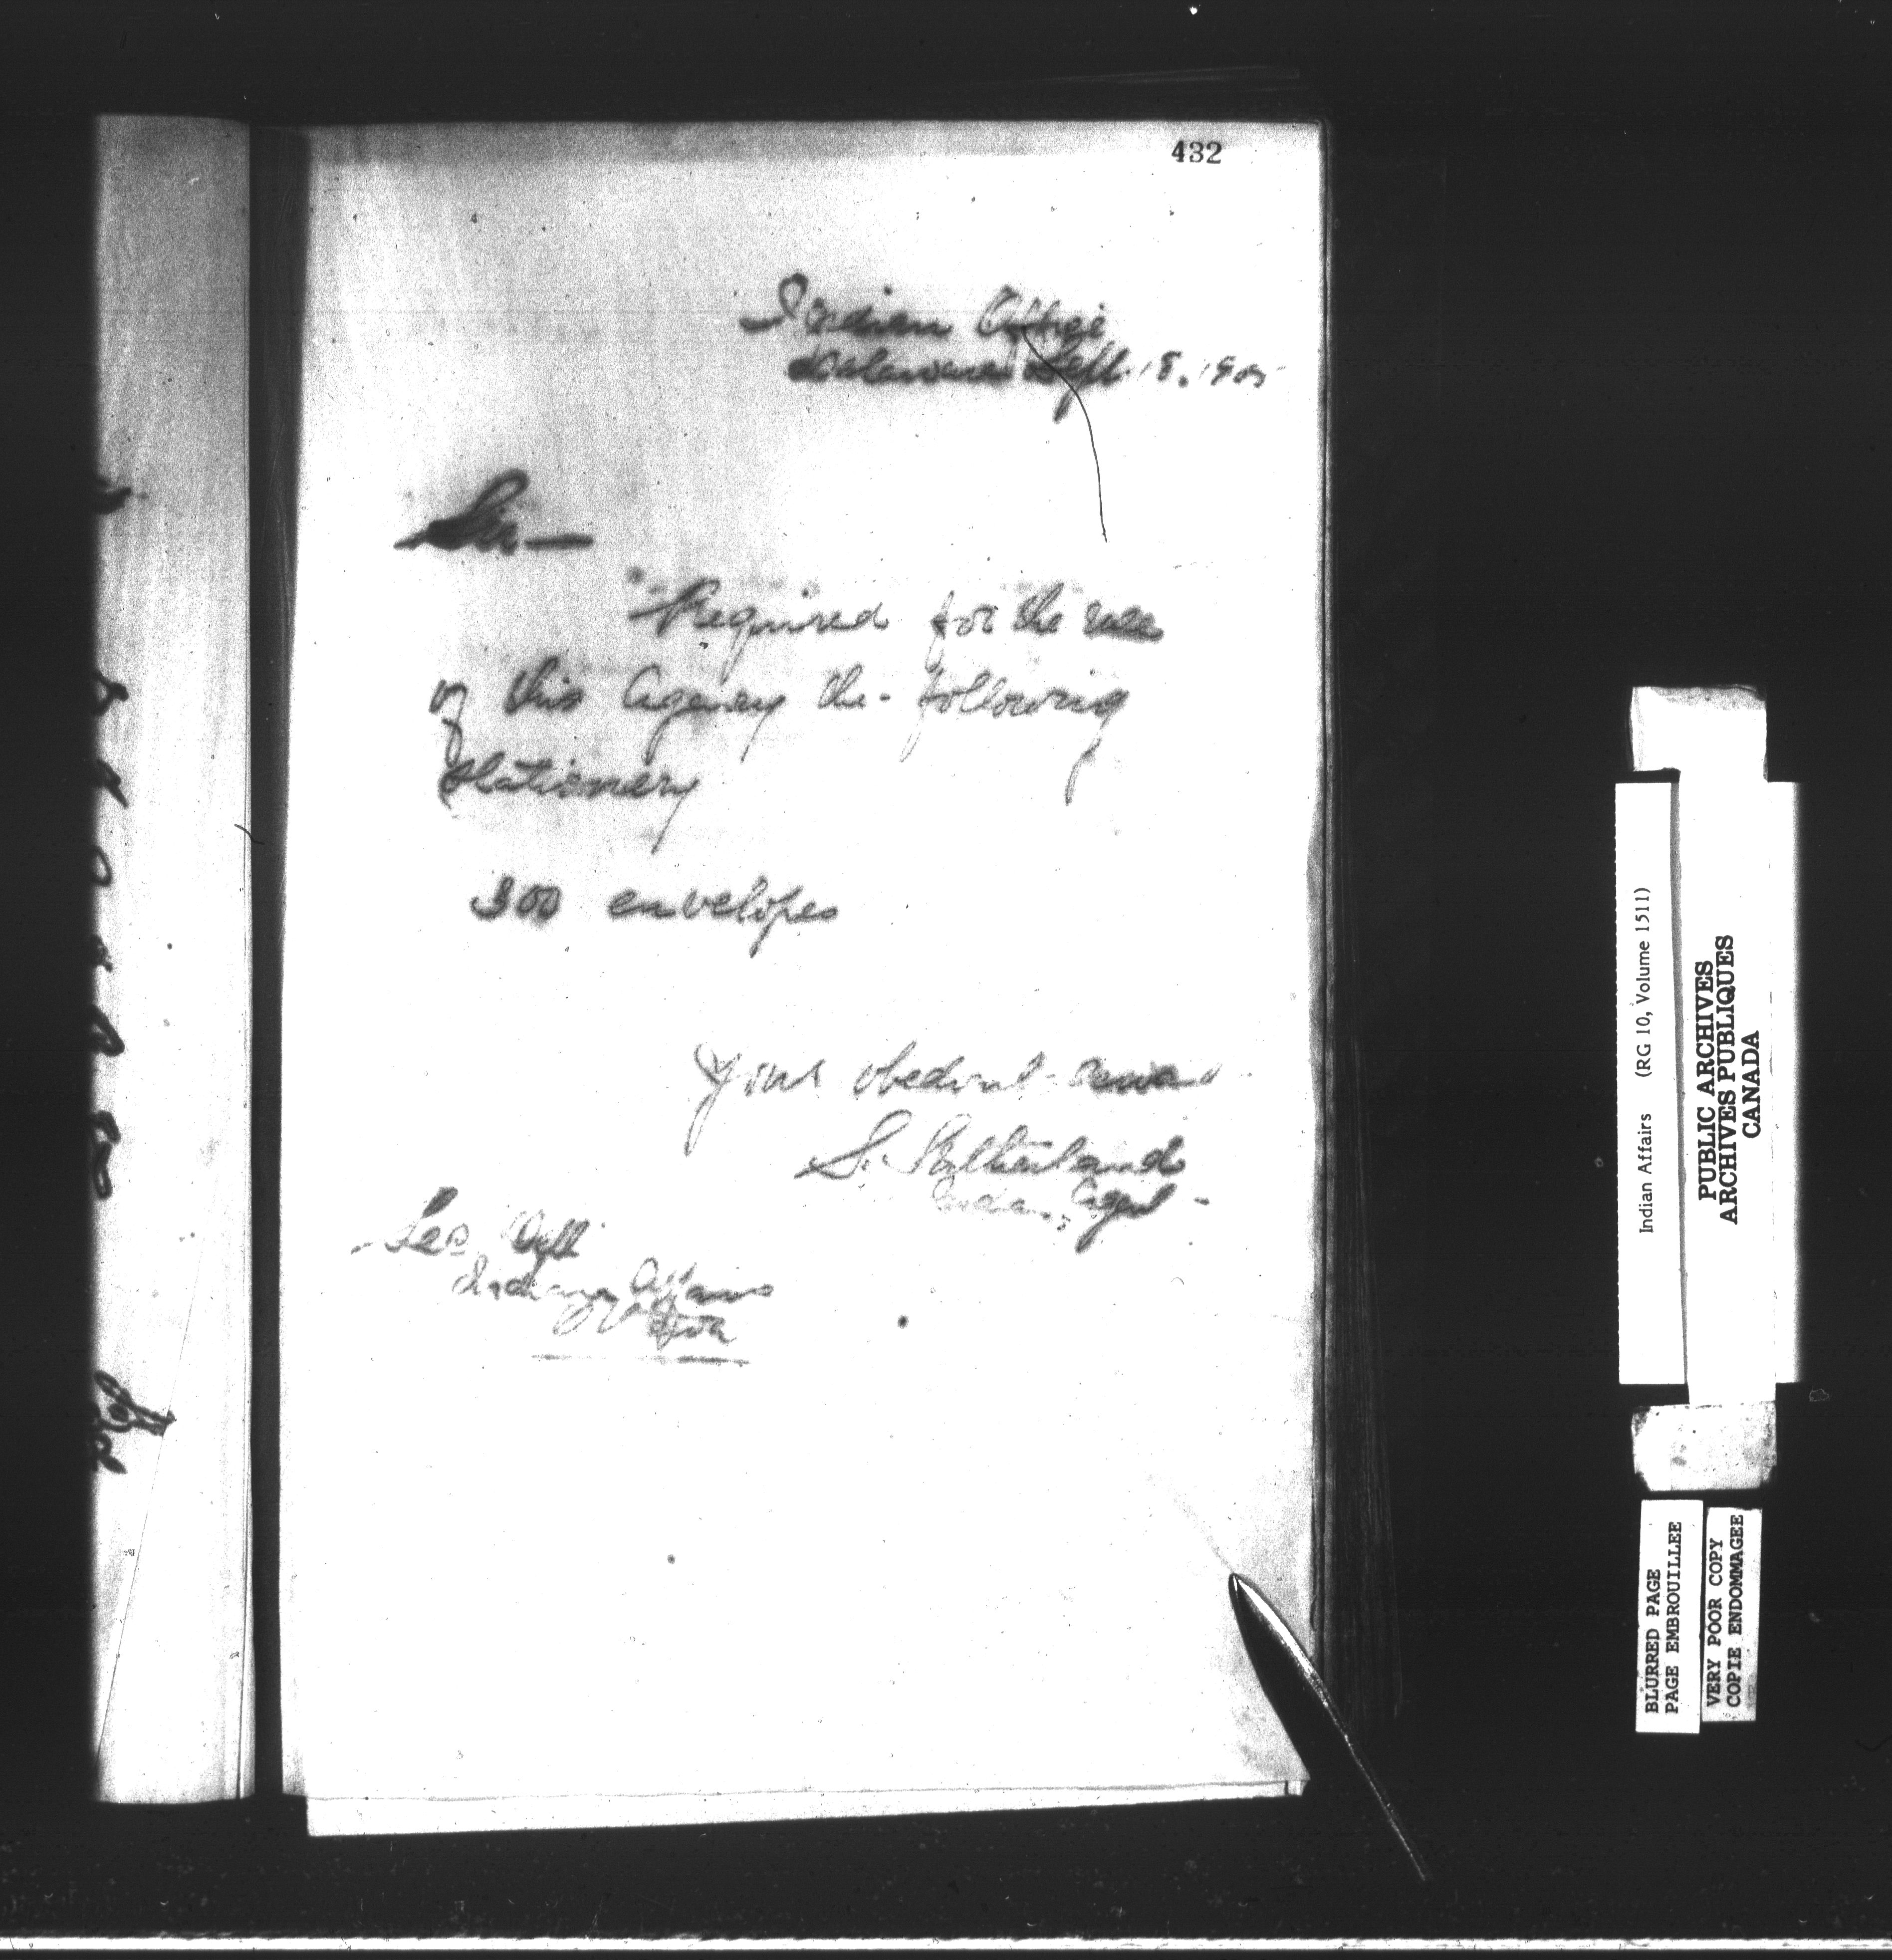 432
Indian Office
Delaware Sept. 18. 1905
Sir—
Required for the use
of this Agency the following
Stationery
300 envelopes
Your obedient
S. Sutherland
Indian Agent
Sec. Dept
Indian Affairs
Ottawa
Indian Affairs (RG 10, Volume 1511)
PUBLIC ARCHIVES
ARCHIVES PUBLIQUES
CANADA
BLURRED PAGE
PAGE EMBROUILLEE
VERY POOR COPY
COPIE ENDOMMAGEE